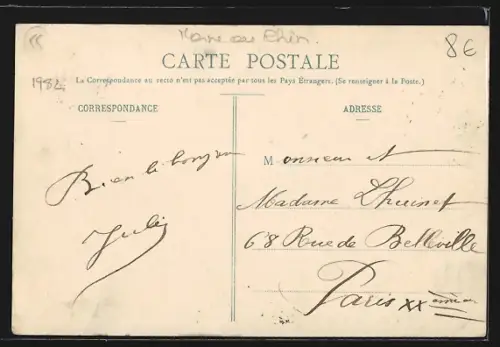 au Rhin.
8€
CARTE POSTALE
La Correspondance au recto n'est pas acceptée par tous les Pays Étrangers. (Se renseigner à la Poste.)
198
CORRESPONDANCE
ADRESSE
Bien le bonjour
Monsieur et
Madame Lhuinet
68 Rue de Belleville
Paris XXème